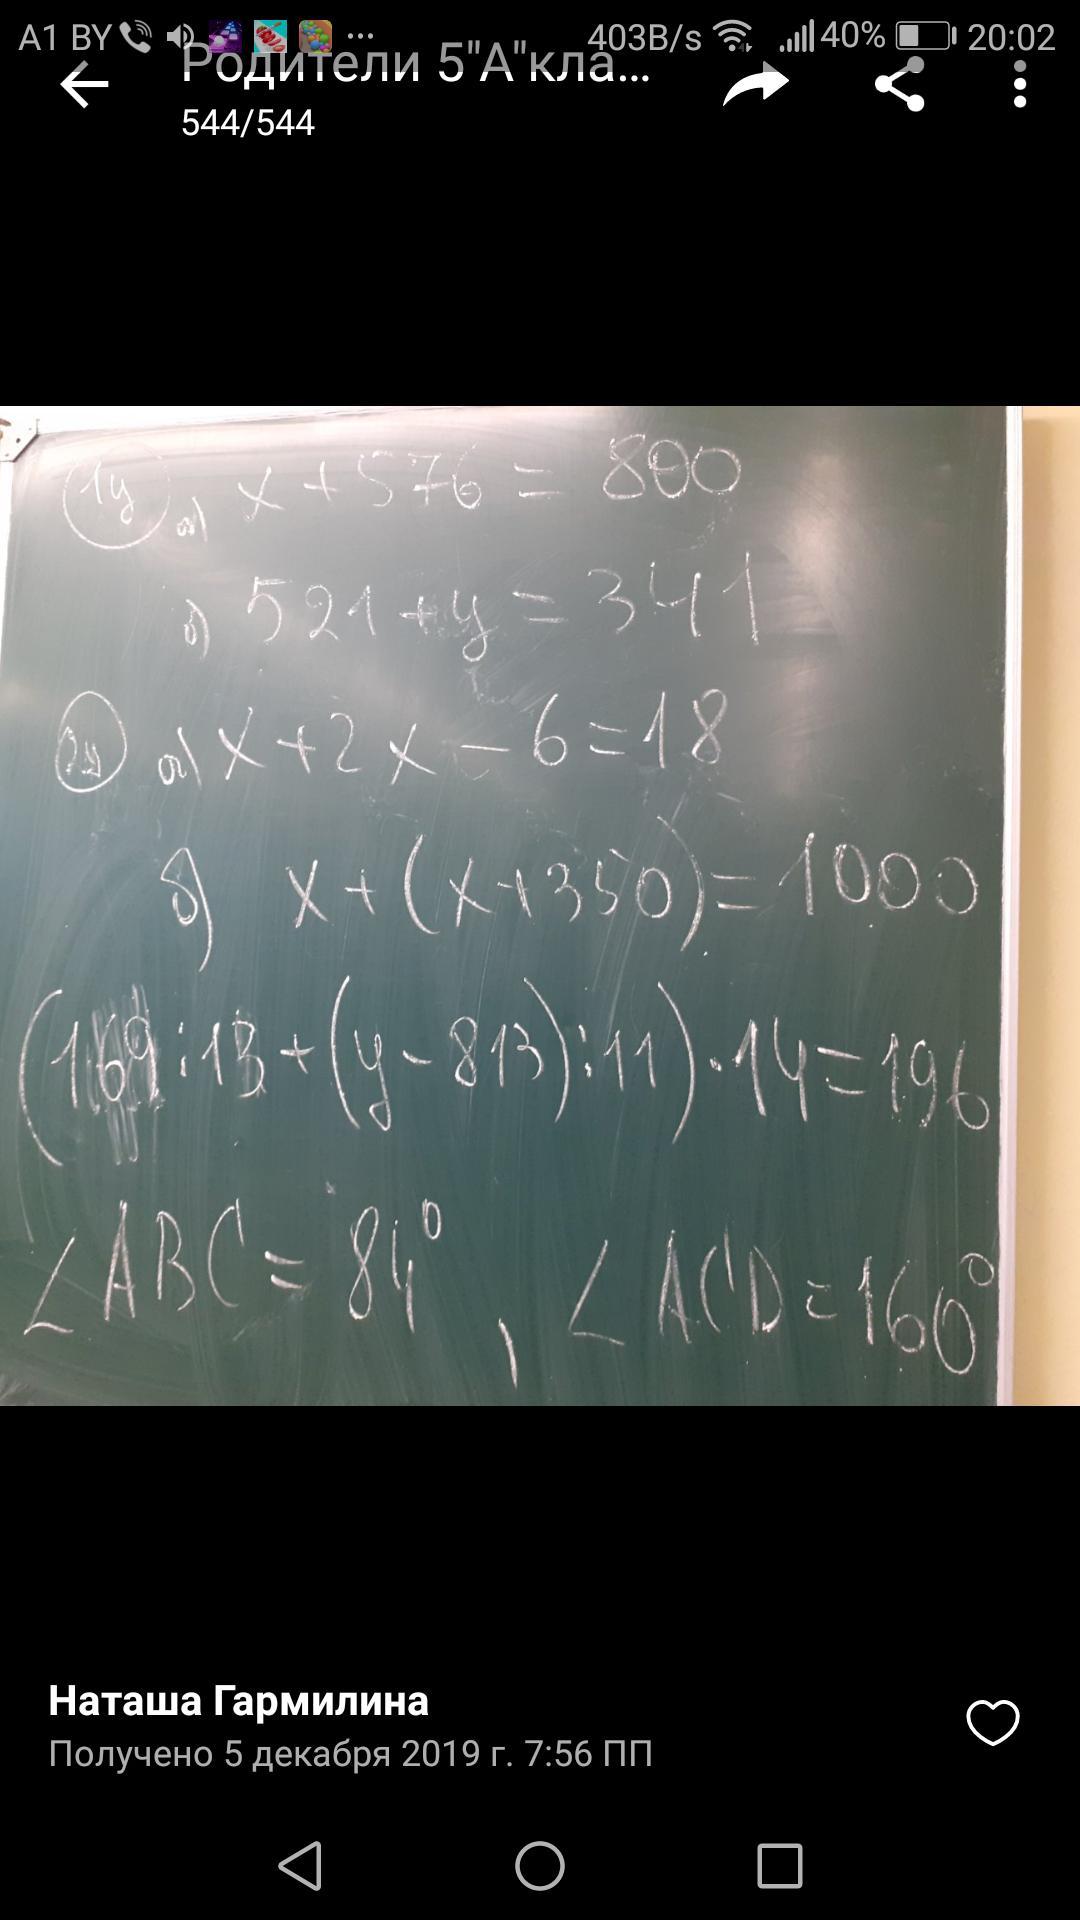 A1 BY 403B/s 40% 20:02
Родители 5"А"кла...
544/544
1у а) x + 576 = 800
б) 521 + y = 341
2у а) x + 2x - 6 = 18
б) x + (x + 350) = 1000
(169 : 13 + (y - 813) : 11) · 14 = 196
∠ABC = 84°, ∠ACD = 160°
Наташа Гармилина
Получено 5 декабря 2019 г. 7:56 ПП